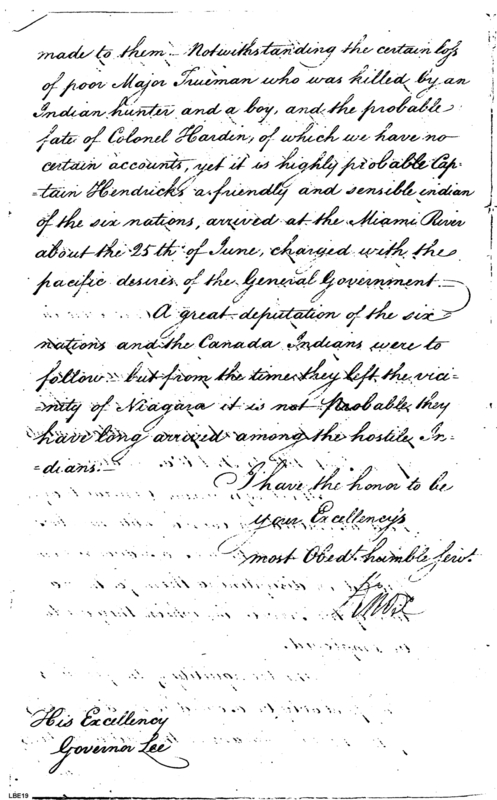 made to them – Notwithstanding the certain loss
of poor Major Trueman who was killed by an
Indian hunter and a boy, and the probable
fate of Colonel Hardin, of which we have no
certain accounts, yet it is highly probable Cap-
=tain Hendricks a friendly and sensible indian
of the six nations, arrived at the Miami River
about the 25th of June, charged with the
pacific desires of the General Government –
A great deputation of the six
nations and the Canada Indians were to
follow but from the time they left the vici-
=nity of Niagara it is not Probable they
have long arrived among the hostile In-
=dians. –
I have the honor to be
your Excellency's
most Obedt. humble Servt.
Knox
His Excellency
Governor Lee
LBE19